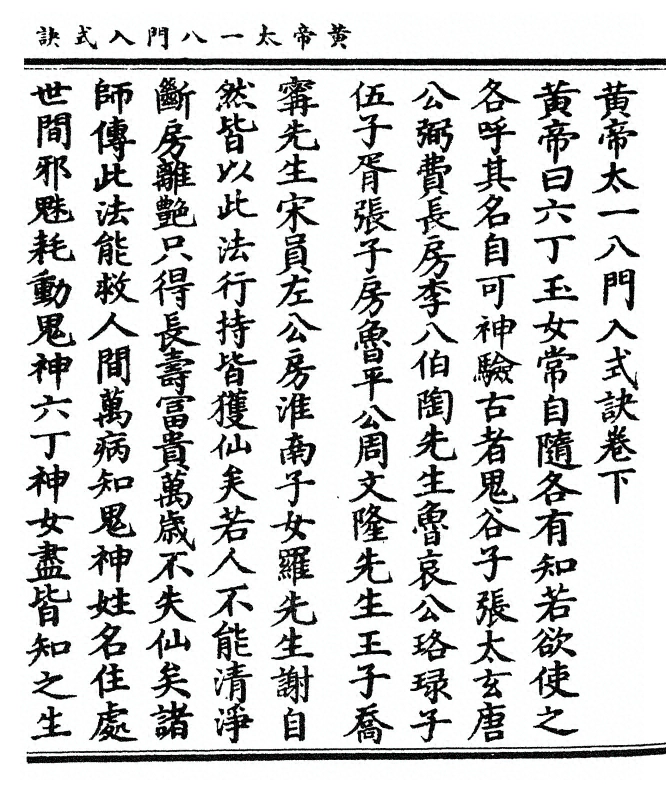 黃帝太一八門入式訣
黃帝太一八門入式訣卷下
黃帝曰六丁玉女常自隨各有知若欲使之
各呼其名自可神驗古者鬼谷子張太玄唐
公弼費長房李八伯陶先生魯哀公珞琭子
伍子胥張子房魯平公周文隆先生王子喬
甯先生宋員左公房淮南子女羅先生謝自
然皆以此法行持皆獲仙矣若人不能清淨
斷房離艷只得長壽富貴萬歲不失仙矣諸
師傳此法能救人間萬病知鬼神姓名住處
世間邪魅耗動鬼神六丁神女盡皆知之生